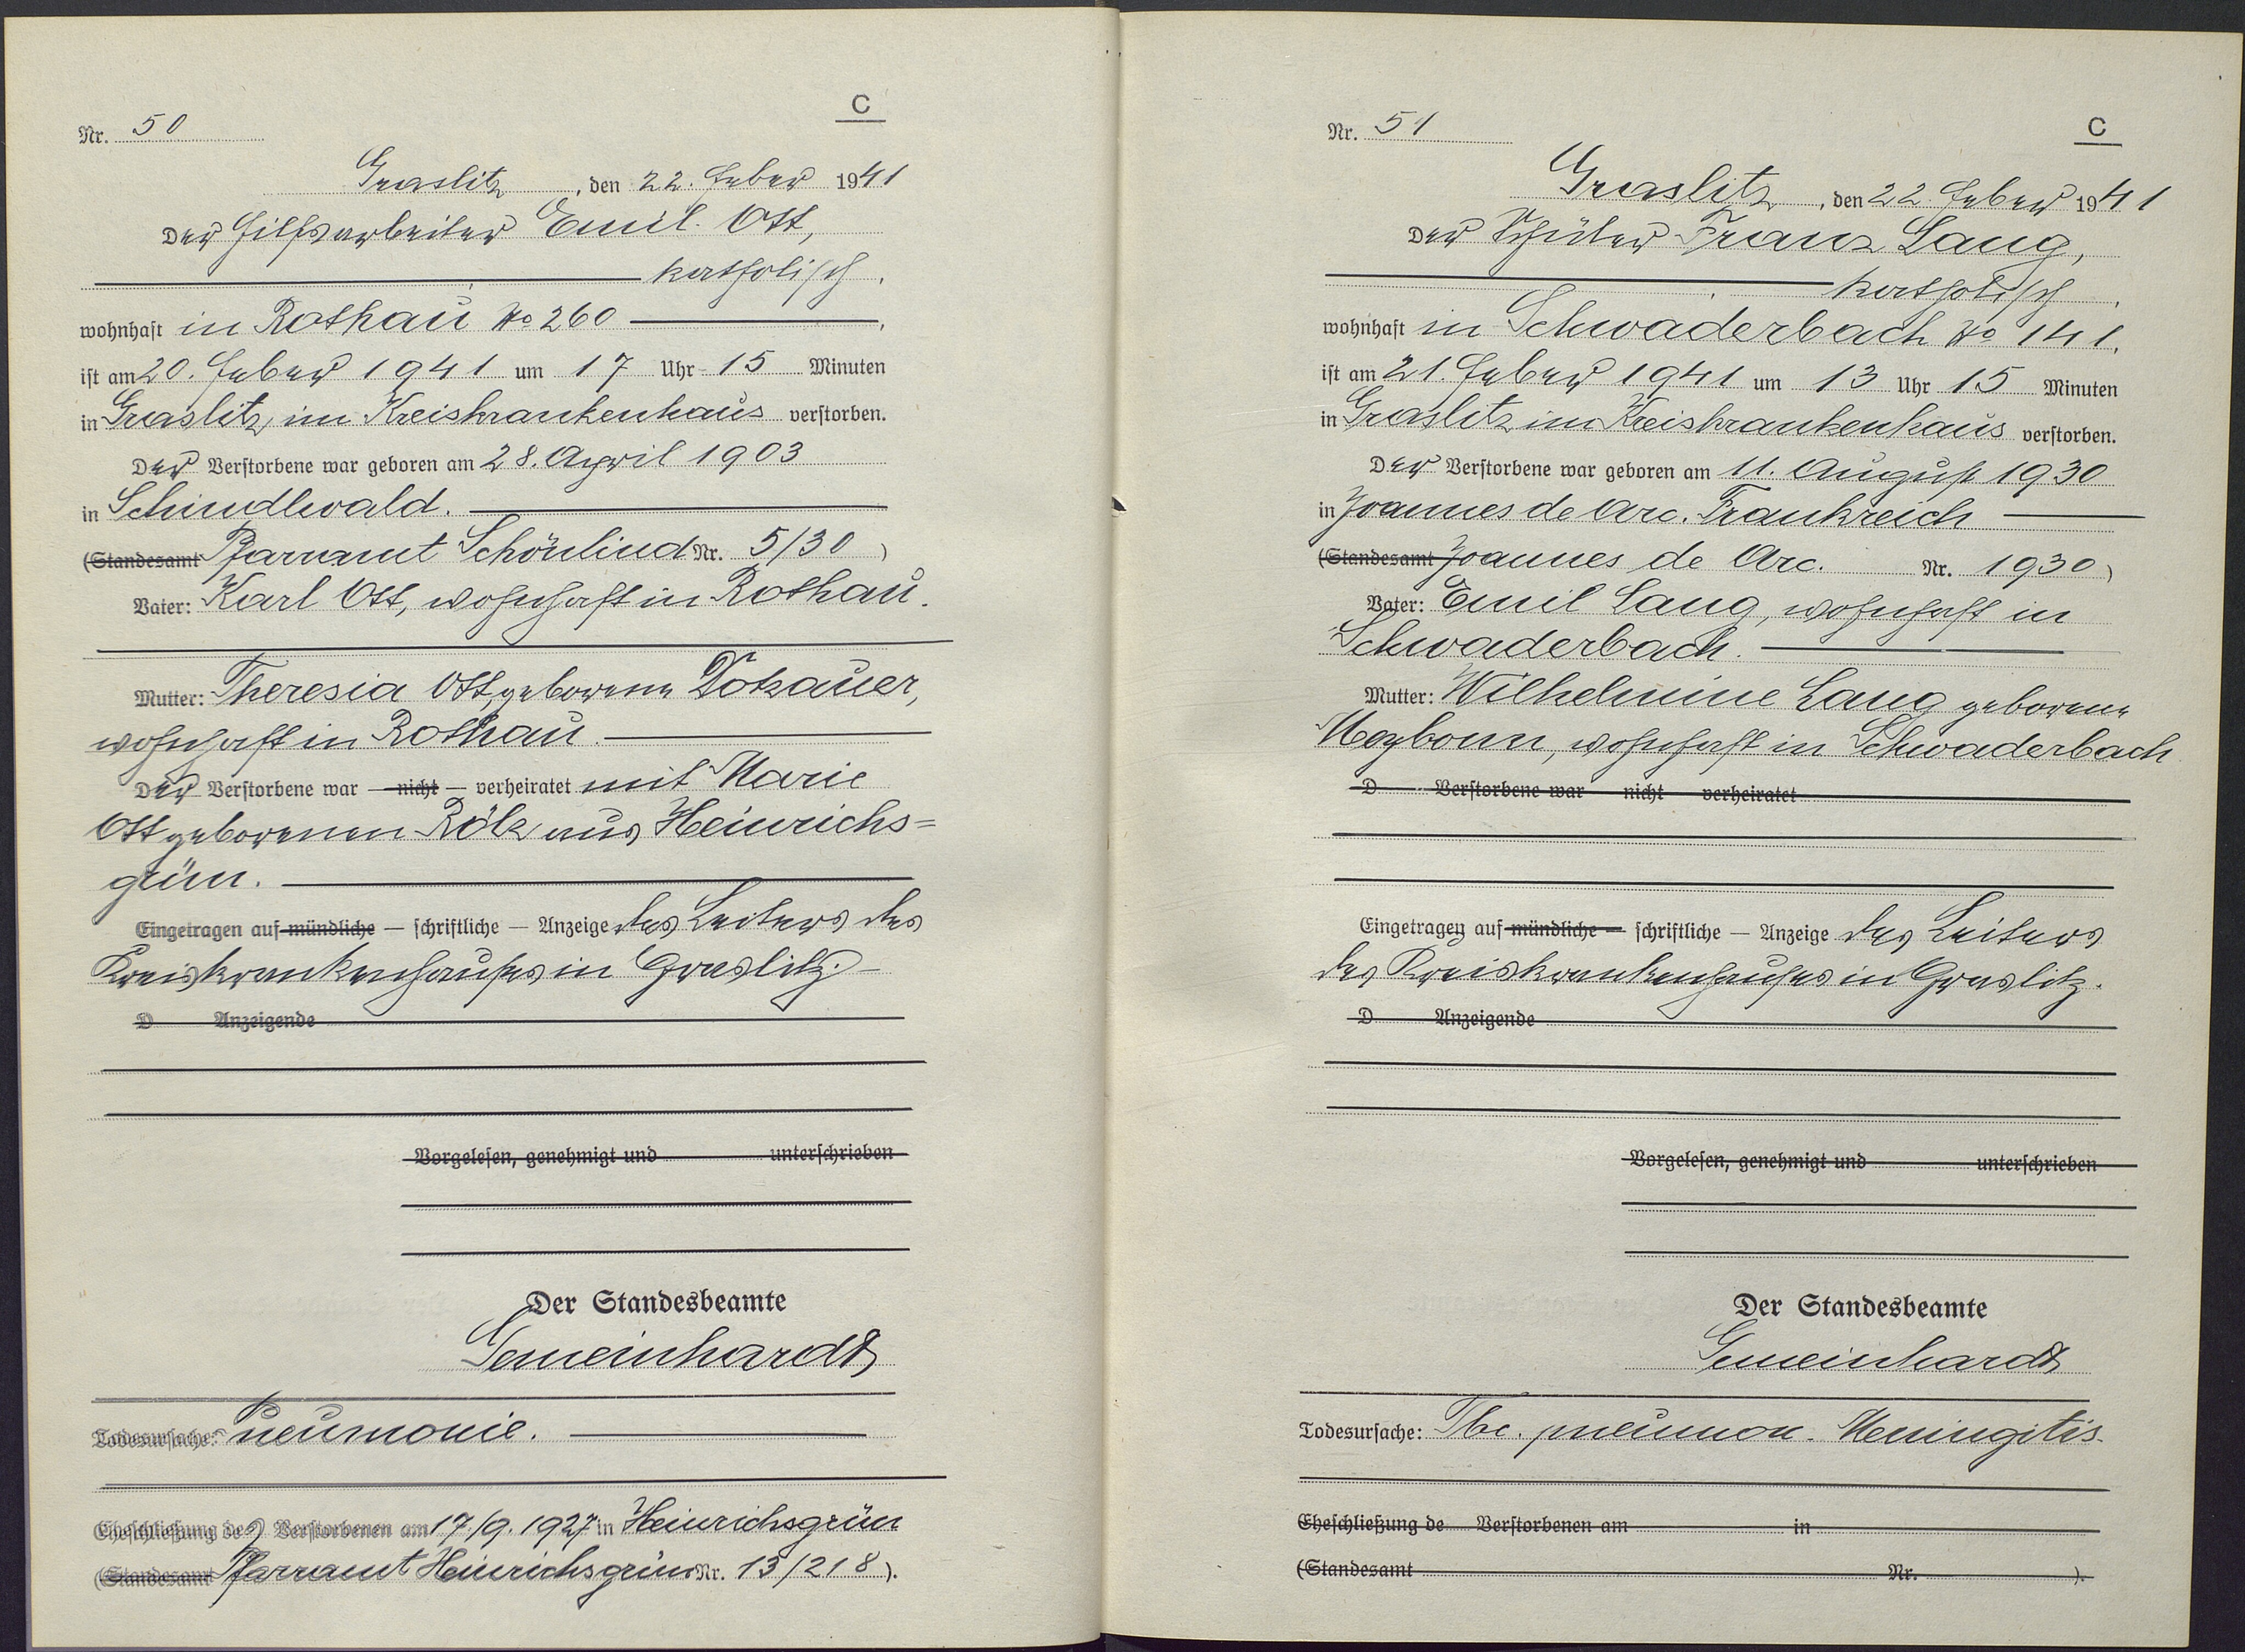 C
Nr. 50
Graslitz, den 22. Feber 1941
Der Hilfsarbeiter Emil Ott,
katholisch,
wohnhaft in Rothau No 260,
ist am 20. Feber 1941 um 17 Uhr 15 Minuten
in Graslitz, im Kreiskrankenhaus verstorben.
Der Verstorbene war geboren am 28. April 1903
in Schindlwald.
(Standesamt Pfarramt Schönlind Nr. 5/30)
Vater: Karl Ott, wohnhaft in Rothau.
Mutter: Theresia Ott, geborene Dotzauer,
wohnhaft in Rothau.
Der Verstorbene war — nicht — verheiratet mit Marie
Ott geborenen Rölz aus Heinrichs=
grün.
Eingetragen auf mündliche — schriftliche — Anzeige des Leiters des
Kreiskrankenhauses in Graslitz.
D Anzeigende
Vorgelesen, genehmigt und unterschrieben
Der Standesbeamte
Gemeinhardt
Todesursache: Pneumonie.
Eheschließung des Verstorbenen am 17./9. 1927 in Heinrichsgrün
(Standesamt Pfarramt Heinrichsgrün Nr. 13/218).
C
Nr. 51
Graslitz, den 22. Feber 1941
Der Schüler Franz Lang,
katholisch,
wohnhaft in Schwaderbach No 141,
ist am 21. Feber 1941 um 13 Uhr 15 Minuten
in Graslitz im Kreiskrankenhaus verstorben.
Der Verstorbene war geboren am 11. August 1930
in Joannes de Arc. Frankreich
(Standesamt Joannes de Arc. Nr. 1930)
Vater: Emil Lang, wohnhaft in
Schwaderbach.
Mutter: Wilhelmine Lang geborene
wohnhaft in Schwaderbach
D Verstorbene war nicht verheiratet
Eingetragen auf mündliche — schriftliche — Anzeige des Leiters
des Kreiskrankenhauses in Graslitz.
D Anzeigende
Vorgelesen, genehmigt und unterschrieben
Der Standesbeamte
Gemeinhardt
Todesursache: Tbc. pneumon. Meningitis.
Eheschließung de Verstorbenen am in
(Standesamt Nr. ).